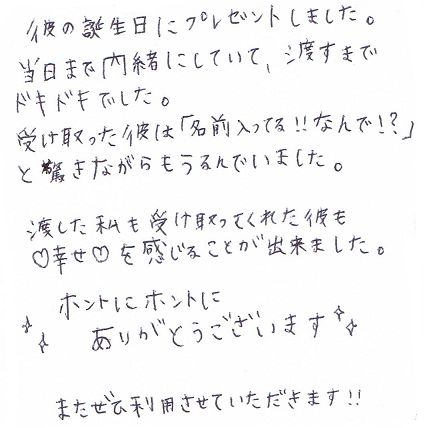 彼の誕生日にプレゼントしました。
当日まで内緒にしていて、渡すまで
ドキドキでした。
受け取った彼は「名前入ってる!!なんで!?」
と驚きながらもうるんでいました。
渡した私も受け取ってくれた彼も
♡幸せ♡を感じることが出来ました。
ホントにホントに
ありがとうございます
またぜひ利用させていただきます!!